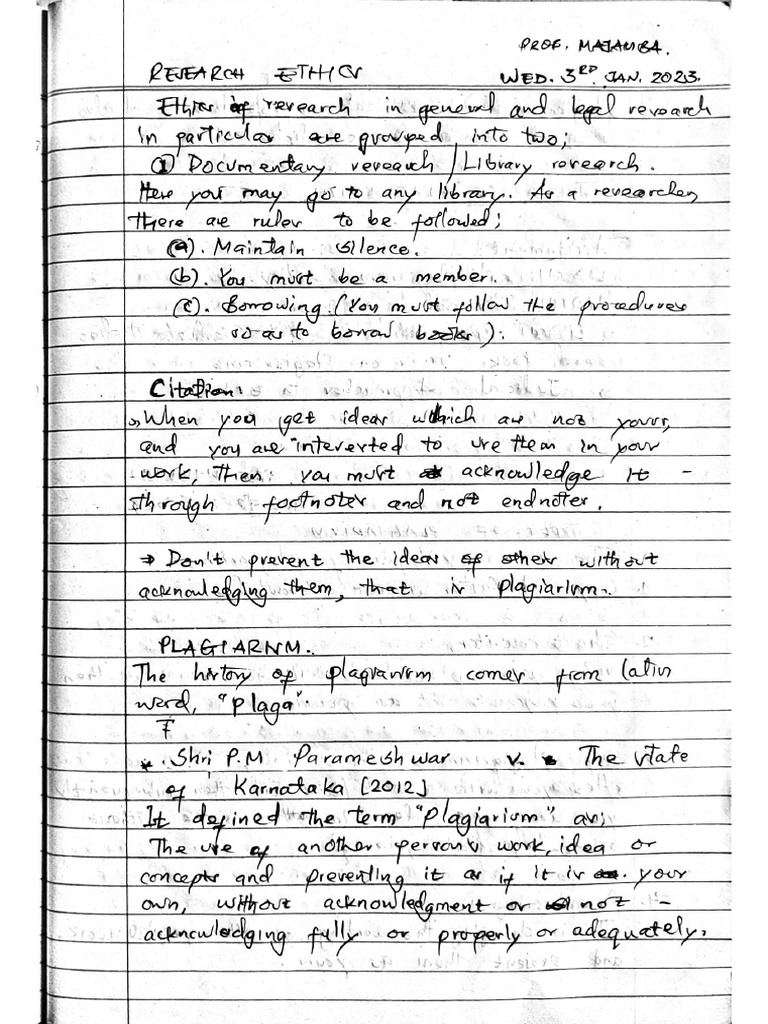 PROF. MAJAMBA.
RESEARCH ETHICS WED. 3RD. JAN. 2023.
Ethics of research in general and legal research
in particular are grouped into two;
① Documentary research / Library research.
Here you may go to any library. As a researcher,
there are rules to be followed;
(a). Maintain silence.
(b). You must be a member.
(c). Borrowing. (You must follow the procedures
so as to borrow books).
Citation:
When you get ideas which are not yours,
and you are interested to use them in your
work, then you must acknowledge it -
through footnotes and not endnotes.
→ Don't present the ideas of others without
acknowledging them, that is plagiarism.
PLAGIARISM.
The history of plagiarism comes from latin
word, "plaga".
* Shri P.M Parameshwar v. The state
of Karnataka [2012]
It defined the term "plagiarism" as;
The use of another person's work, idea or
concepts and presenting it as if it is your
own, without acknowledgment or not -
acknowledging fully or properly or adequately.